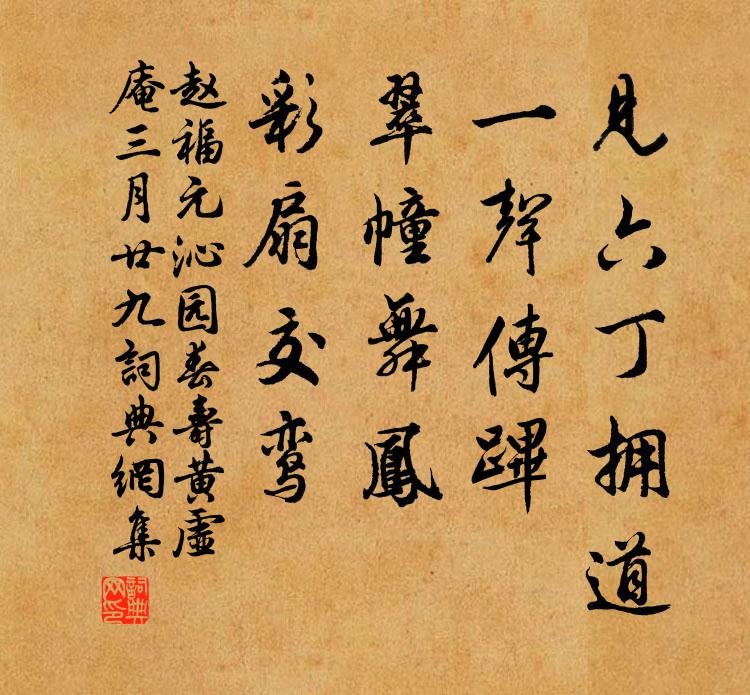 見六丁拥道
一聲傳蹕
翠幢舞鳳
彩扇交鸾
赵福元沁园春壽黄虚
庵三月廿九詞典網集
詞典
网印